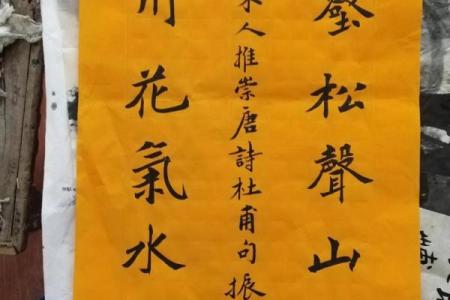 壑松聲山
人推崇唐詩杜甫句振
川花氣水